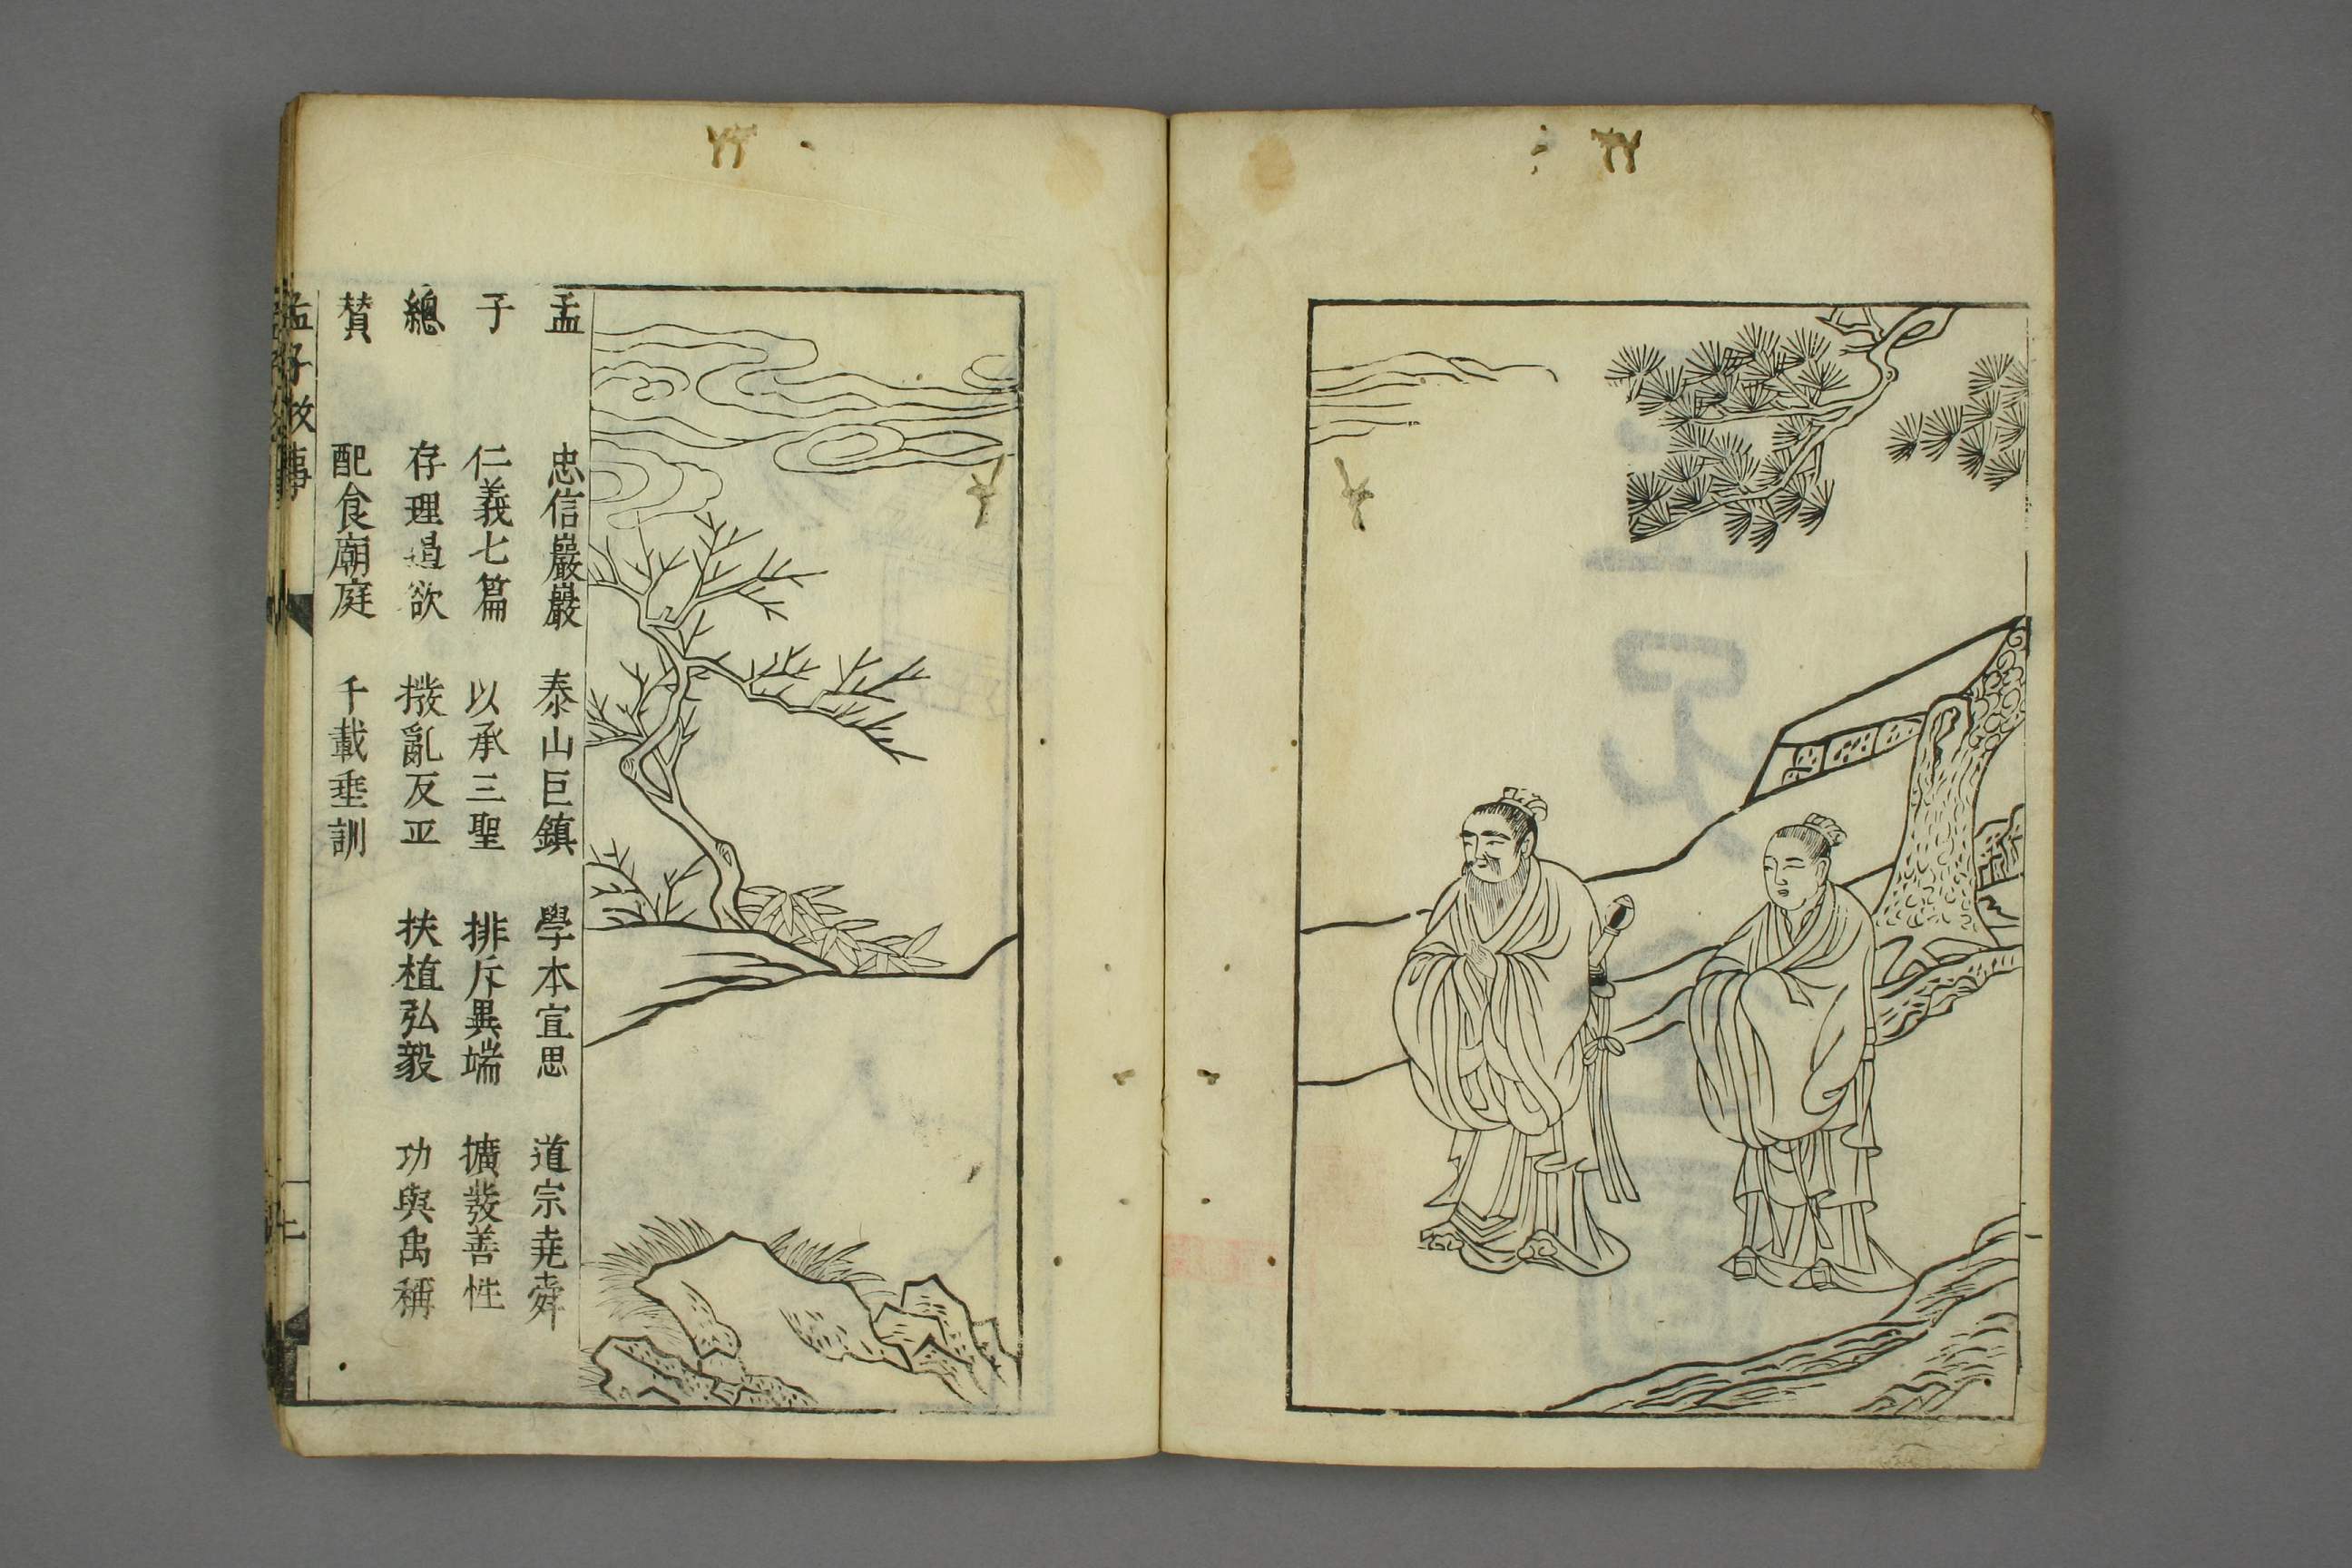 孟　忠信巖巖　泰山巨鎮　學本宣思　道宗堯舜
子　仁義七篇　以承三聖　排斥異端　擴發善性
總　存理遏欲　撥亂反正　扶植弘毅　功與禹稱
贊　配食廟庭　千載垂訓
孟子故事